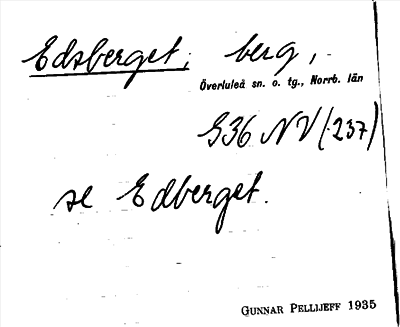 Edsberget, berg,
Överluleå sn. o. tg., Norrb. län
G36 NV (237)
se Edberget.
GUNNAR PELLIJEFF 1935